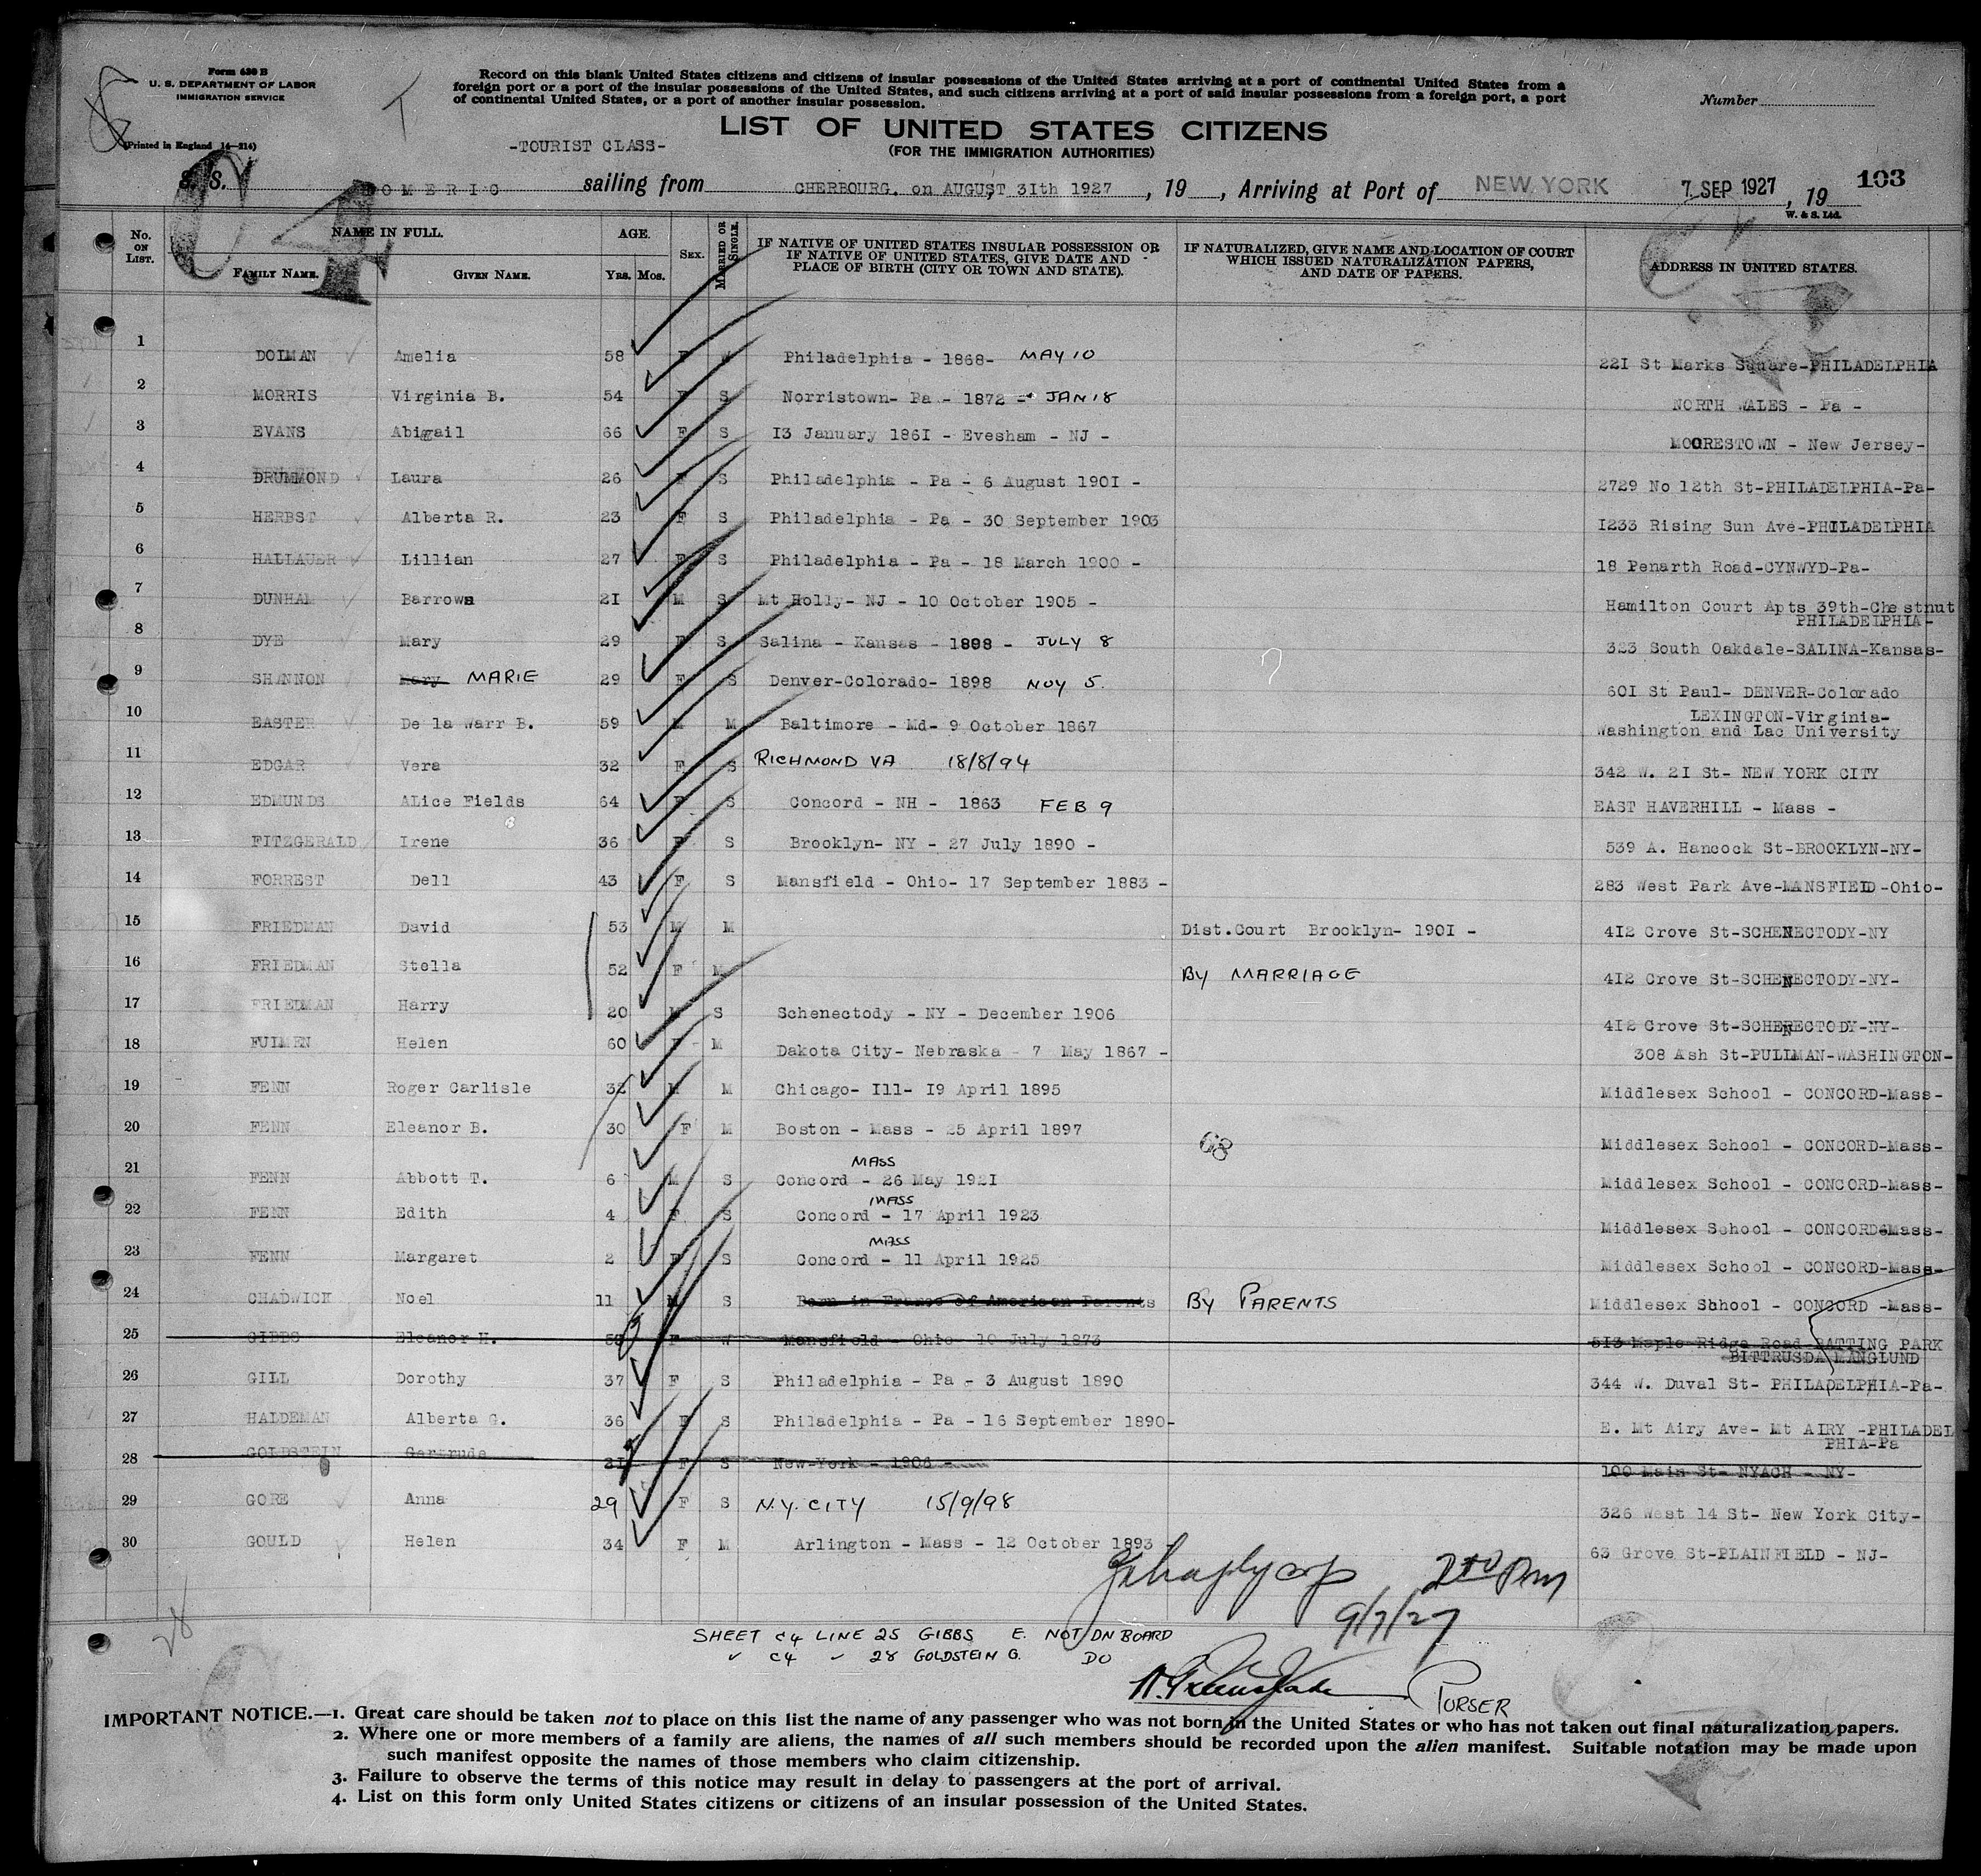 Form 630 B
U. S. DEPARTMENT OF LABOR
IMMIGRATION SERVICE
(Printed in England 14—214)
Record on this blank United States citizens and citizens of insular possessions of the United States arriving at a port of continental United States from a
foreign port or a port of the insular possessions of the United States, and such citizens arriving at a port of said insular possessions from a foreign port, a port
of continental United States, or a port of another insular possession.
Number
LIST OF UNITED STATES CITIZENS
(FOR THE IMMIGRATION AUTHORITIES)
-TOURIST CLASS-
C4
S. S. DOMERIC sailing from CHERBOURG. on AUGUST 31th 1927, 19 , Arriving at Port of NEW YORK 7 SEP 1927, 19 103
W. & S. Ltd.
No. ON LIST. NAME IN FULL. FAMILY NAME. GIVEN NAME. AGE. YRS. MOS. SEX. MARRIED OR SINGLE. IF NATIVE OF UNITED STATES INSULAR POSSESSION OR IF NATIVE OF UNITED STATES, GIVE DATE AND PLACE OF BIRTH (CITY OR TOWN AND STATE). IF NATURALIZED, GIVE NAME AND LOCATION OF COURT WHICH ISSUED NATURALIZATION PAPERS, AND DATE OF PAPERS. ADDRESS IN UNITED STATES.
1 DOLMAN Amelia 58 F M Philadelphia - 1868- MAY 10 221 St Marks Square-PHILADELPHIA
2 MORRIS Virginia B. 54 F S Norristown- Pa - 1872 - JAN 18 NORTH WALES - Pa -
3 EVANS Abigail 66 F S 13 January 1861 - Evesham - NJ - MOORESTOWN - New Jersey-
4 DRUMMOND Laura 26 F S Philadelphia - Pa - 6 August 1901 - 2729 No 12th St-PHILADELPHIA-Pa-
5 HERBST Alberta R. 23 F S Philadelphia - Pa - 30 September 1903 1233 Rising Sun Ave-PHILADELPHIA
6 HALLAUER Lillian 27 F S Philadelphia - Pa - 18 March 1900 - 18 Penarth Road-CYNWYD-Pa-
7 DUNHAM Barrows 21 M S Mt Holly- NJ - 10 October 1905 - Hamilton Court Apts 39th-Chestnut
PHILADELPHIA-
8 DYE Mary 29 F S Salina - Kansas - 1898 - JULY 8 323 South Oakdale-SALINA-Kansas-
9 SHANNON Mary MARIE 29 F S Denver-Colorado- 1898 NOV 5. 601 St Paul- DENVER-Colorado
10 EASTER De la Warr B. 59 M M Baltimore - Md- 9 October 1867 LEXINGTON-Virginia-
Washington and Lac University
11 EDGAR Vera 32 F S RICHMOND VA 18/8/94 342 W. 21 St- NEW YORK CITY
12 EDMUNDS ALice Fields 64 F S Concord - NH - 1863 FEB 9 EAST HAVERHILL - Mass -
13 FITZGERALD Irene 36 F S Brooklyn- NY - 27 July 1890 - 539 A. Hancock St-BROOKLYN-NY-
14 FORREST Dell 43 F S Mansfield - Ohio- 17 September 1883 - 283 West Park Ave-MANSFIELD-Ohio-
15 FRIEDMAN David 53 M M Dist.Court Brooklyn- 1901 - 412 Crove St-SCHENECTODY-NY
16 FRIEDMAN Stella 52 F M BY MARRIAGE 412 Crove St-SCHENECTODY-NY-
17 FRIEDMAN Harry 20 M S Schenectody - NY - December 1906 412 Crove St-SCHENECTODY-NY-
18 FULMEN Helen 60 F M Dakota City- Nebraska - 7 May 1867 - 308 Ash St-PULLMAN-WASHINGTON-
19 FENN Roger Carlisle 32 M M Chicago- Ill- 19 April 1895 Middlesex School - CONCORD-Mass-
20 FENN Eleanor B. 30 F M Boston - Mass - 25 April 1897 Middlesex School - CONCORD-Mass-
68
21 FENN Abbott T. 6 M S Concord - MASS 26 May 1921 Middlesex School - CONCORD-Mass-
22 FENN Edith 4 F S Concord - MASS 17 April 1923 Middlesex School - CONCORD-Mass-
23 FENN Margaret 2 F S Concord - MASS 11 April 1925 Middlesex School - CONCORD-Mass-
24 CHADWICK Noel 11 M S Born in France of American Parents BY PARENTS Middlesex Shhool - CONCORD -Mass-
25 GIBBS Eleanor H. F W Mansfield - Ohio- 10 July 1873 513 Maple Ridge Road-BATTING PARK
26 GILL Dorothy 37 F S Philadelphia - Pa - 3 August 1890 344 W. Duval St- PHILADELPHIA-Pa-
27 HALDEMAN Alberta G. 36 F S Philadelphia - Pa - 16 September 1890- E. Mt Airy Ave- Mt AIRY -PHILADEL
PHIA-Pa
28 GOLDSTEIN Gertrude 21 F S New-York - 1906 - 100 Main St- NYACH - NY-
29 GORE Anna 29 F S N.Y. CITY 15/9/98 326 West 14 St- New York City-
30 GOULD Helen 34 F M Arlington - Mass - 12 October 1893 63 Grove St-PLAINFIELD - NJ-
9/7/27
28
SHEET C4 LINE 25 GIBBS E. NOT ON BOARD
C4 28 GOLDSTEIN G. DO
PURSER
IMPORTANT NOTICE.—1. Great care should be taken not to place on this list the name of any passenger who was not born in the United States or who has not taken out final naturalization papers.
2. Where one or more members of a family are aliens, the names of all such members should be recorded upon the alien manifest. Suitable notation may be made upon
such manifest opposite the names of those members who claim citizenship.
3. Failure to observe the terms of this notice may result in delay to passengers at the port of arrival.
4. List on this form only United States citizens or citizens of an insular possession of the United States.